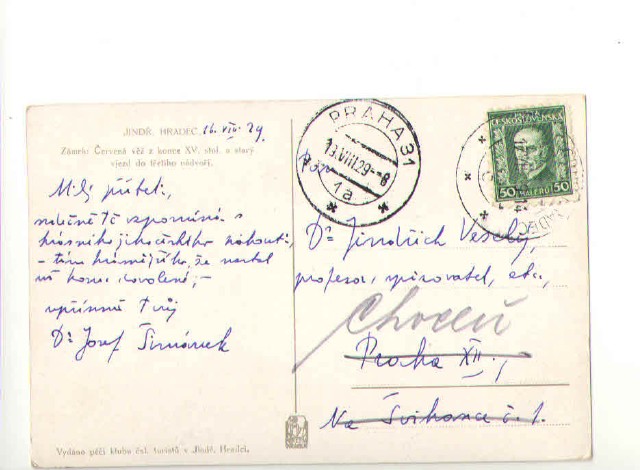 JINDŘ. HRADEC. 16. VIII. 29.
Zámek: Červená věž z konce XV. stol. a starý
vjezd do třetího nádvoří.
Milý příteli,
srdečně Tě vzpomíná z
krásného jihočeského
krásnějšího, že nastal
konec dovolené,
upřímně Tvůj
Dr Josef Šimánek
Vydáno péčí klubu čsl. turistů v Jindř. Hradci.
PRAHA 31
13.VIII.29-8
1a
ČESKOSLOVENSKÁ
50 HALÉŘŮ 50
Pan
Dr Jindřich Veselý,
profesor, spisovatel, etc.,
Choceň
Praha XII.,
Na Švihance č. 1.